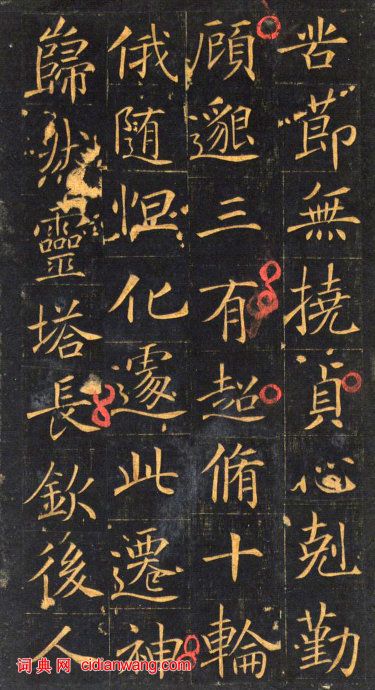 苦莭無撓貞心尅勤
顧邈三有超脩十輪
俄随怛化遽此遷神
巋然靈塔長欽後人
词典网 cidianwang.com